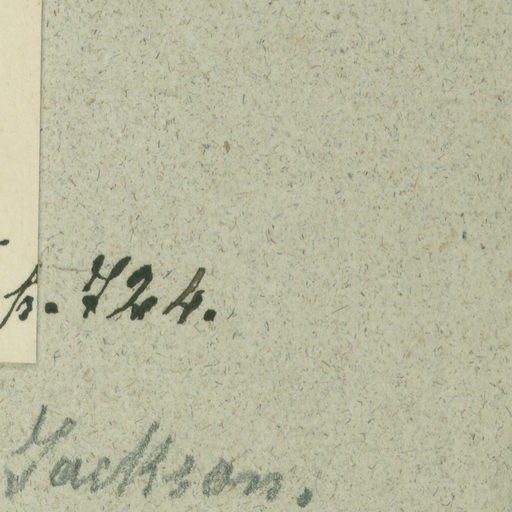 p. 724.
Jackson.